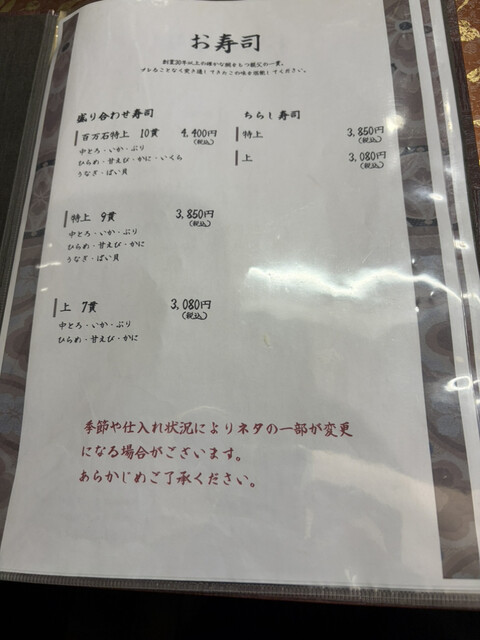 お寿司
創業30年以上の確かな腕をもつ親父の一貫。
ブレることなく貫き通してきたこの味を信頼してください。
盛り合わせ寿司
百万石特上 10貫 4,400円
(税込)
中とろ・いか・ぶり
ひらめ・甘えび・かに・いくら
うなぎ・ばい貝
特上 9貫 3,850円
(税込)
中とろ・いか・ぶり
ひらめ・甘えび・かに
うなぎ・ばい貝
上 7貫 3,080円
(税込)
中とろ・いか・ぶり
ひらめ・甘えび・かに
ちらし寿司
特上 3,850円
(税込)
上 3,080円
(税込)
季節や仕入れ状況によりネタの一部が変更
になる場合がございます。
あらかじめご了承ください。